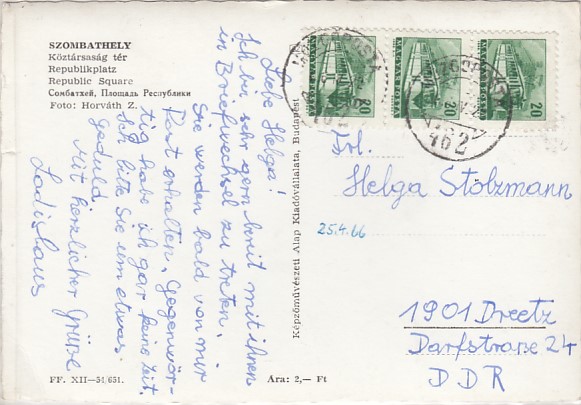 SZOMBATHELY
Köztársaság tér
Republikplatz
Republic Square
Сомбатхей, Площадь Республики
Foto: Horváth Z.
Liebe Helga!
Ich bin sehr gern bereit mit ihnen
in Briefwechsel zu treten.
Sie werden bald von mir
Post erhalten. Gegenwär-
tig habe ich gar keine Zeit.
Ich bitte Sie um etwas
geduld.
Mit herzlicher Grüße
Ladislaus
FF. XII—54/651.
Ára: 2,— Ft
Képzőművészeti Alap Kiadóvállalata, Budapest
MAGYAR POSTA
20
20
20
462
462
Frl.
Helga Stolzmann
25.4.66
1901 Dreetz
Darfstraße 24
DDR